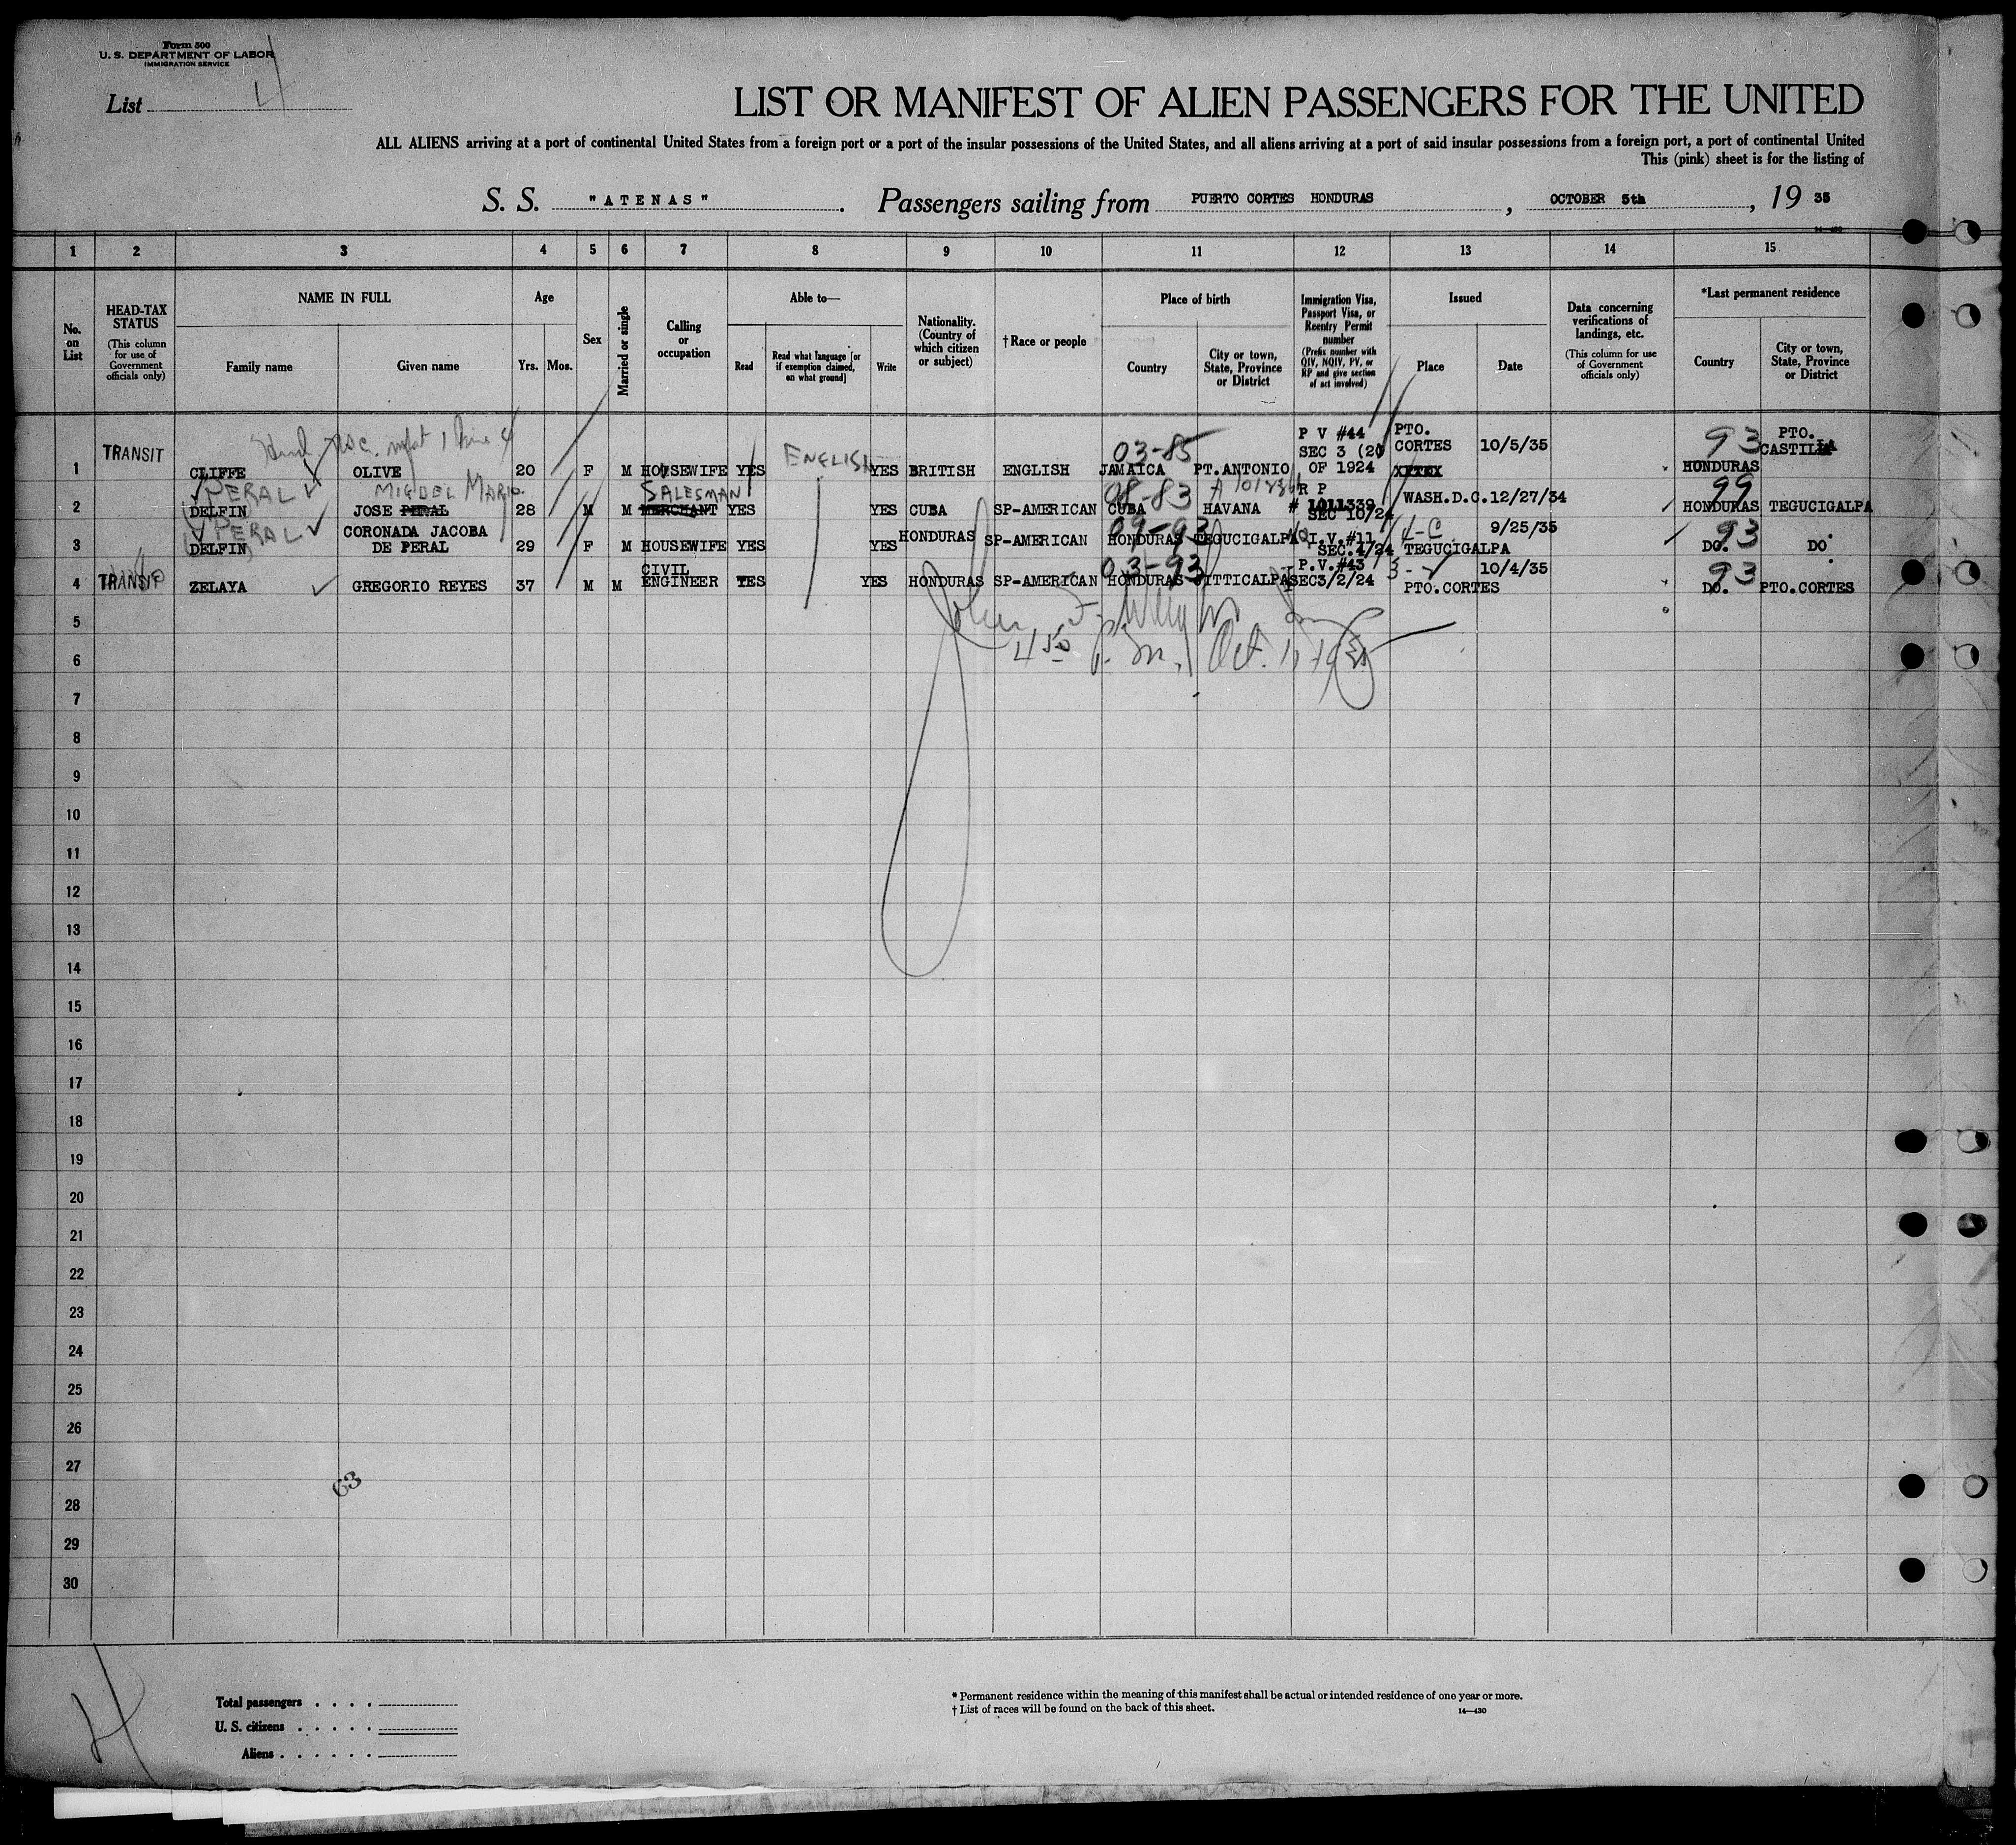 Form 500
U. S. DEPARTMENT OF LABOR
IMMIGRATION SERVICE
List 4
LIST OR MANIFEST OF ALIEN PASSENGERS FOR THE UNITED
ALL ALIENS arriving at a port of continental United States from a foreign port or a port of the insular possessions of the United States, and all aliens arriving at a port of said insular possessions from a foreign port, a port of continental United
This (pink) sheet is for the listing of
S. S. "ATENAS". Passengers sailing from PUERTO CORTES HONDURAS, OCTOBER 5th, 19 35
14—430
1 2 3 4 5 6 7 8 9 10 11 12 13 14 15
No. on List
HEAD-TAX STATUS
(This column for use of Government officials only)
NAME IN FULL
Family name
Given name
Age
Yrs.
Mos.
Sex
Married or single
Calling or occupation
Able to—
Read
Read what language [or if exemption claimed, on what ground]
Write
Nationality. (Country of which citizen or subject)
†Race or people
Place of birth
Country
City or town, State, Province or District
Immigration Visa, Passport Visa, or Reentry Permit number
(Prefix number with QIV, NQIV, PV, or RP and give section of act involved)
Issued
Place
Date
Data concerning verifications of landings, etc.
(This column for use of Government officials only)
*Last permanent residence
Country
City or town, State, Province or District
1 TRANSIT CLIFFE OLIVE 20 F M HOUSEWIFE YES ENGLISH YES BRITISH ENGLISH 03-85 JAMAICA PT.ANTONIO P V #44 SEC 3 (2) OF 1924 PTO. CORTES 10/5/35 93 HONDURAS PTO. CASTILLA
PERAL MIGUEL MARIO SALESMAN 08-83 99
2 DELFIN JOSE PERAL 28 M M MERCHANT YES YES CUBA SP-AMERICAN CUBA HAVANA R P # 1011339 SEC 10/24 WASH.D.C. 12/27/34 HONDURAS TEGUCIGALPA
PERAL 09-93 4-C 93
3 DELFIN CORONADA JACOBA DE PERAL 29 F M HOUSEWIFE YES YES HONDURAS SP-AMERICAN HONDURAS TEGUCIGALPA Q.I.V.#11 SEC.4/24 TEGUCIGALPA 9/25/35 DO. DO
03-93 93
4 TRANSIT ZELAYA GREGORIO REYES 37 M M CIVIL ENGINEER YES YES HONDURAS SP-AMERICAN HONDURAS JITTICALPA P.V.#43 SEC3/2/24 PTO.CORTES 10/4/35 DO. PTO.CORTES
5
6 4 50 p. m. Oct.
7
8
9
10
11
12
13
14
15
16
17
18
19
20
21
22
23
24
25
26
27
63
28
29
30
4
Total passengers
U. S. citizens
Aliens
* Permanent residence within the meaning of this manifest shall be actual or intended residence of one year or more.
† List of races will be found on the back of this sheet.
14—430